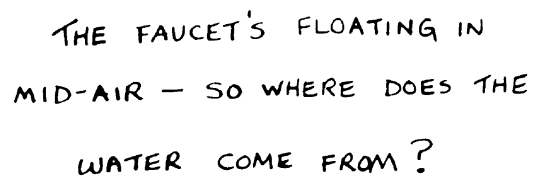 THE FAUCET'S FLOATING IN
MID-AIR — SO WHERE DOES THE
WATER COME FROM?